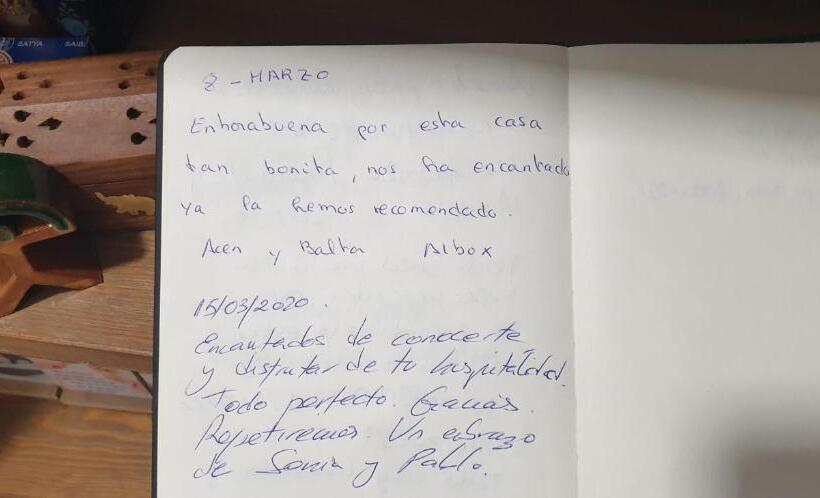 SATYA SAI BA
8 - MARZO
Enhorabuena por esta casa
tan bonita, nos ha encantado
ya la hemos recomendado.
y Balta Albox
15/03/2020.
Encantados de conocerte
y disfrutar de tu hospitalidad.
Todo perfecto. Gracias.
Repetiremos. Un abrazo
de Sonia y Pablo.